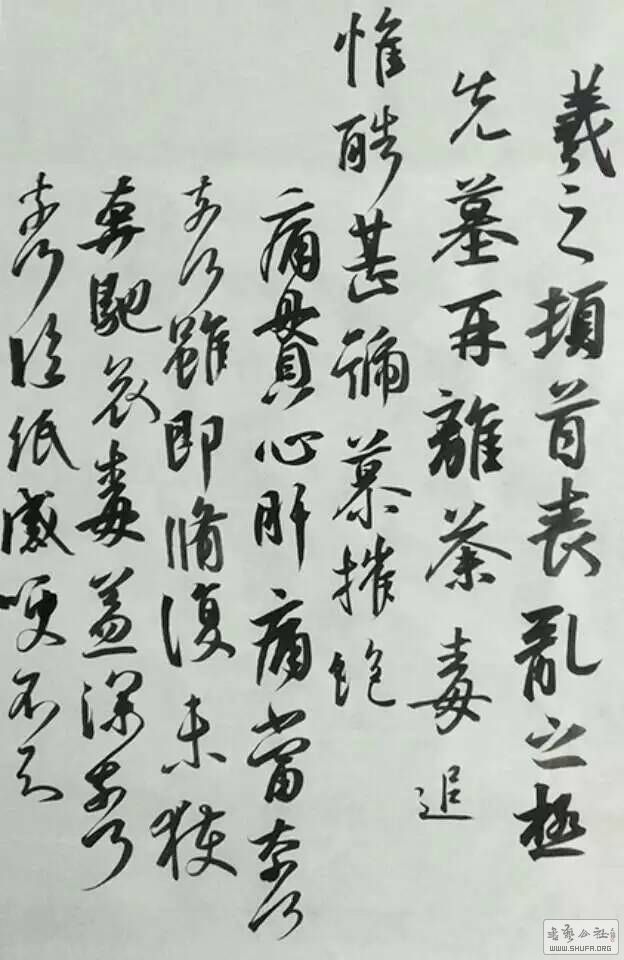 羲之頓首喪亂之極
先墓再離荼毒追
惟酷甚號慕摧絕
痛貫心肝痛當奈何
奈何雖即脩復未獲
奔馳哀毒益深奈何
奈何臨紙感哽不知
WWW.SHUFA.ORG